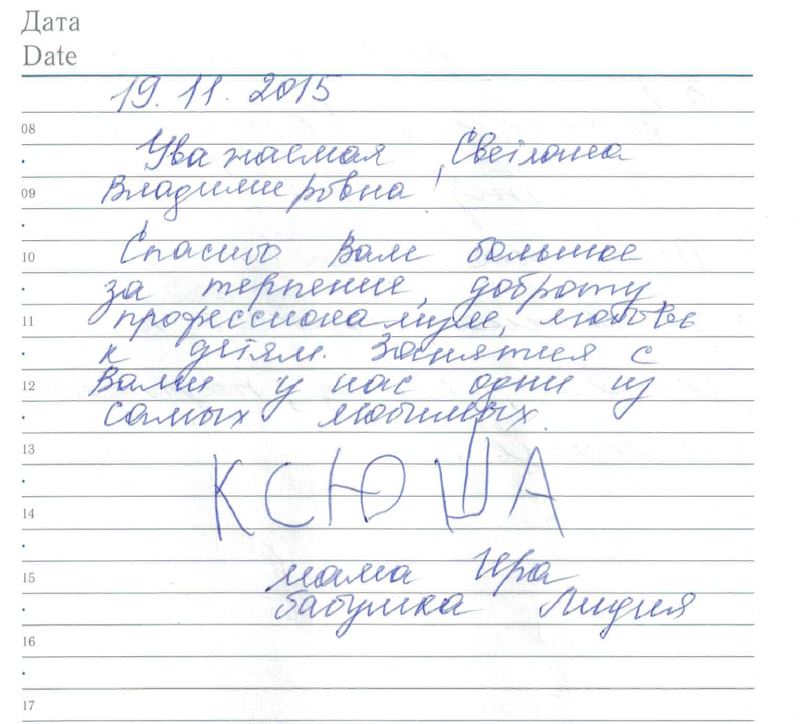 Дата
Date
19. 11. 2015
08
Уважаемая Светлана
09
Владимировна!
10
Спасибо Вам большое
за терпение, доброту,
11
профессионализм, любовь
к детям. Занятия с
12
Вами у нас одни из
самых любимых.
13
КСЮША
14
15
мама Ира
бабушка Лидия
16
17